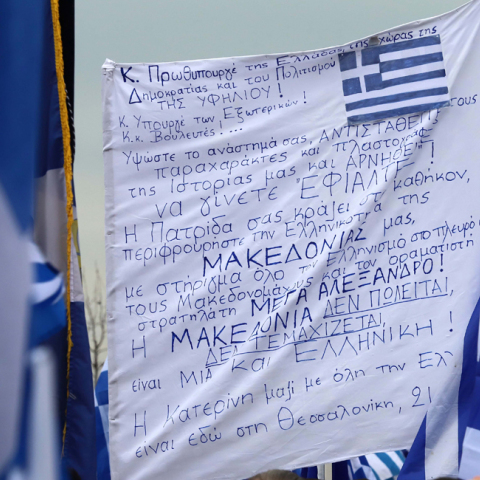 Κ. Πρωθυπουργέ της Ελλάδας, της χώρας της
Δημοκρατίας και του Πολιτισμού
ΤΗΣ ΥΦΗΛΙΟΥ!
Κ. Υπουργέ των Εξωτερικών!
Κ.κ. Βουλευτές! ...
τους
Υψώστε το ανάστημα σας, ΑΝΤΙΣΤΑΘΕΙΤΕ
παραχαράκτες και πλαστογρά
της Ιστορίας μας και ΑΡΝΗΘΕΙ !
να γίνετε ΕΦΙΑΛΤΕ
Η Πατρίδα σας κράζει στ καθήκον,
περιφρουρήστε την Ελληνικότητα της
ΜΑΚΕΔΟΝΙΑΣ μας,
με στήριγμα όλο τον Ελληνισμό στο πλευρό
τους Μακεδονομάχους και τον οραματιστή
στρατηλάτη ΜΕΓΑ ΑΛΕΞΑΝΔΡΟ!
Η ΜΑΚΕΔΟΝΙΑ ΔΕΝ ΠΩΛΕΙΤΑΙ,
ΔΕΝ ΤΕΜΑΧΙΖΕΤΑΙ,
είναι ΜΙΑ και ΕΛΛΗΝΙΚΗ!
Η Κατερίνη μαζί με όλη την Ελ
είναι εδώ στη Θεσσαλονίκη, 21